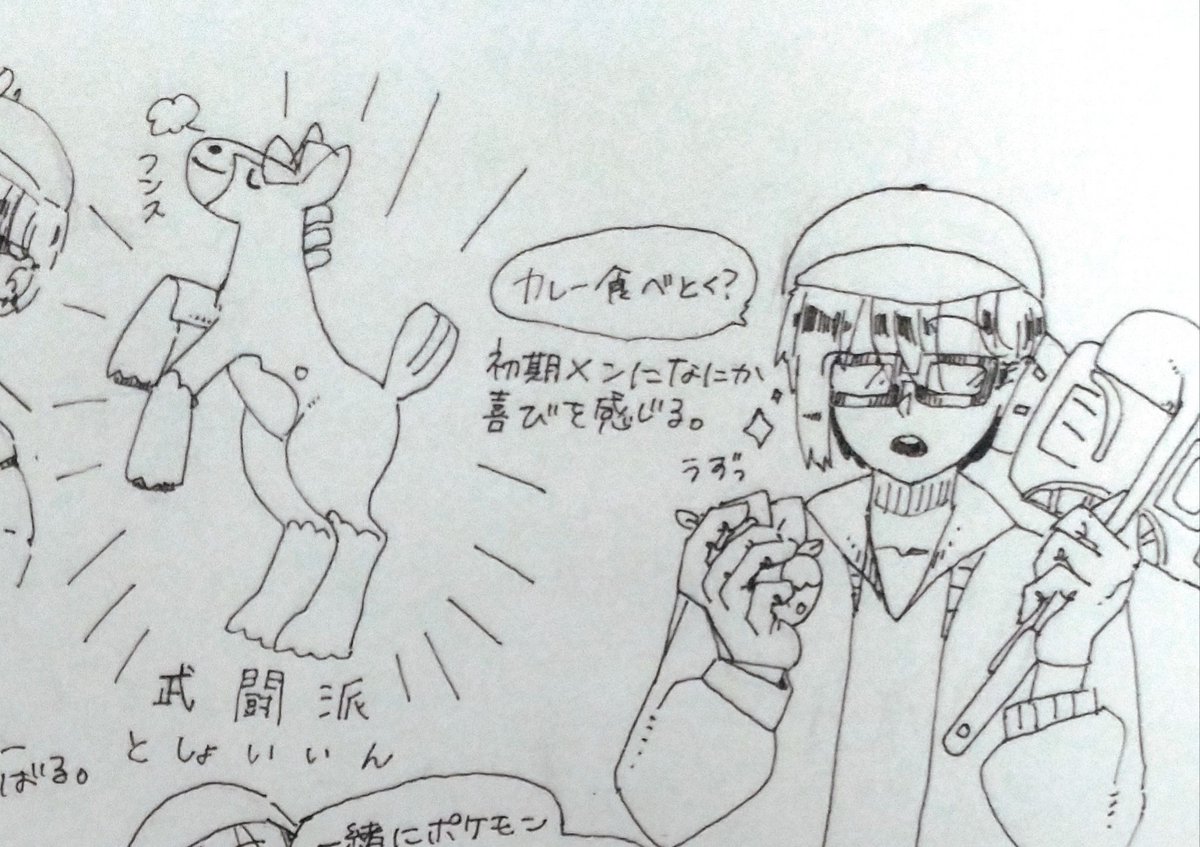 フンス
カレー食べとく?
初期メンになにか
喜びを感じる。
うずっ
武闘派
としょいいん
ばる。
一緒にポケモン